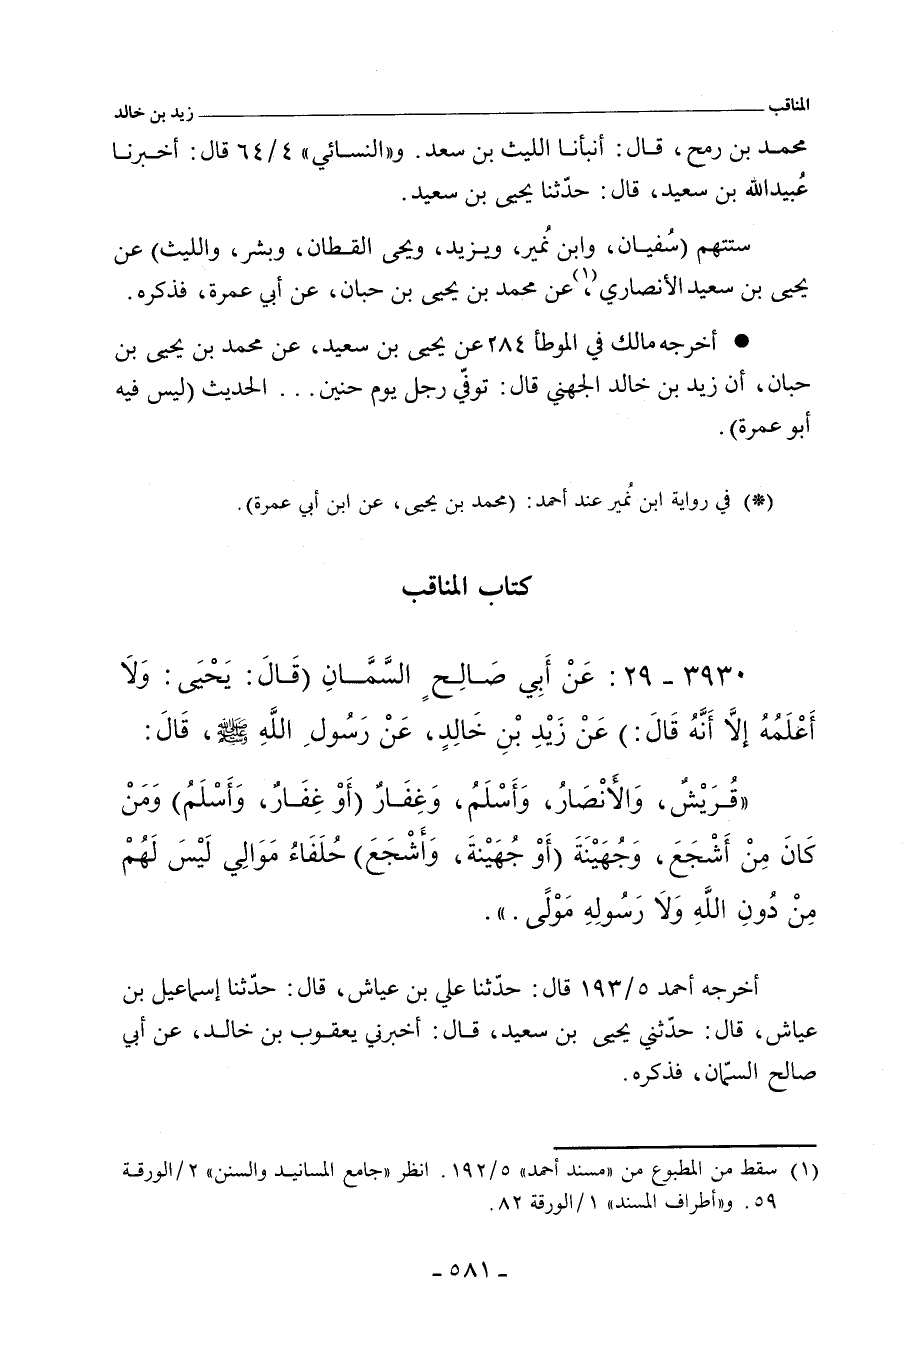 المناقب زيد بن خالد
محمد بن رمح، قال: أنبأنا الليث بن سعد. و«النسائي» ٦٤/٤ قال: أخبرنا
عُبيدالله بن سعيد، قال: حدّثنا يحيى بن سعيد.
ستتهم (سُفيان، وابن نُمير، ويزيد، ويحى القطان، وبشر، والليث) عن
يحيى بن سعيد الأنصاري(١)، عن محمد بن يحيى بن حبان، عن أبي عمرة، فذكره.
● أخرجه مالك في الموطأ ٢٨٤ عن يحيى بن سعيد، عن محمد بن يحيى بن
حبان، أن زيد بن خالد الجهني قال: توفّي رجل يوم حنين... الحديث (ليس فيه
أبو عمرة).
(*) في رواية ابن نُمير عند أحمد: (محمد بن يحيى، عن ابن أبي عمرة).
كتاب المناقب
٣٩٣٠ - ٢٩: عَنْ أَبِي صَالِحٍ السَّمَّانِ (قَالَ: يَحْيَى: وَلَا
أَعْلَمُهُ إلَّا أَنَّهُ قَالَ:) عَنْ زَيْدِ بْنِ خَالِدٍ، عَنْ رَسُولِ اللَّهِ ﷺ، قَالَ:
«قُرَيْشٌ، وَالْأَنْصَارُ، وَأَسْلَمُ، وَغِفَارٌ (أَوْ غِفَارٌ، وَأَسْلَمُ) وَمَنْ
كَانَ مِنْ أَشْجَعَ، وَجُهَيْنَةَ (أَوْ جُهَيْنةَ، وَأَشْجَعَ) حُلَفَاءُ مَوَالِي لَيْسَ لَهُمْ
مِنْ دُونِ اللَّهِ وَلَا رَسُولِهِ مَوْلًى.».
أخرجه أحمد ١٩٣/٥ قال: حدّثنا علي بن عياش، قال: حدّثنا إسماعيل بن
عياش، قال: حدّثني يحيى بن سعيد، قال: أخبرني يعقوب بن خالد، عن أبي
صالح السمّان، فذكره.
(١) سقط من المطبوع من «مسند أحمد» ١٩٢/٥. انظر «جامع المسانيد والسنن» ٢/الورقة
٥٩. و«أطراف المسند» ١/الورقة ٨٢.
- ٥٨١ -